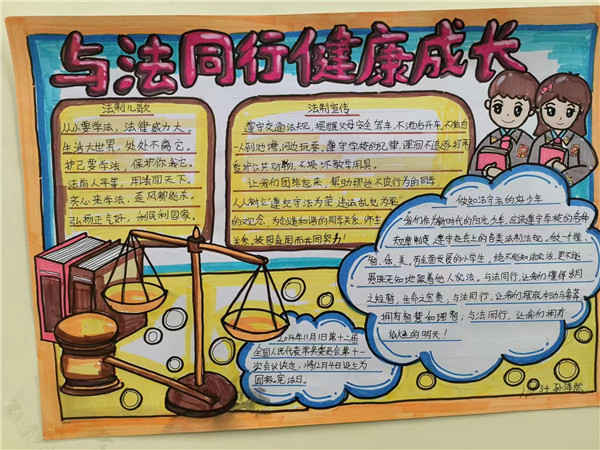 与法同行健康成长
法制儿歌
从小要学法，法律威力大。
生活大世界，处处不离它。
护己要学法，保护你我它。
法前人平等，用法问天下。
大家来学法，歪风都能杀。
弘扬正气好，利民利国家。
法制宣传
遵守交通法规，提醒父母安全驾车，不酒后开车，不独自
一人到池塘，河边玩耍，遵守学校的纪律，课间不追逐打闹
爱护公共动物，不损坏教学用具。
让我们团结起来，帮助那些不良行为的同学，
人人树立"遵规守法为荣 违法乱纪为耻"
的观念，为创造和谐的同学关系，师生
关系，校园氛围而共同努力！
做知法守法的好少年
我们作为新时代的阳光少年，应该遵守学校的各种
规章制度，遵守社会上的各类法制法规，做一个德、
智、体、美、劳全面发展的小学生，绝不能知法犯法，更不能
愚昧无知地跟着他人犯法，与法同行，让我们懂得岁月
之短暂，生命之宝贵，与法同行，让我们摆脱冲动与鲁莽
拥有智慧和理智，与法同行，让我们拥有
灿烂的明天！
2014年11月1日第十二届
全国人民代表常务委员会第十一
次会议决定，将12月4日设立为
国家宪法日。
34